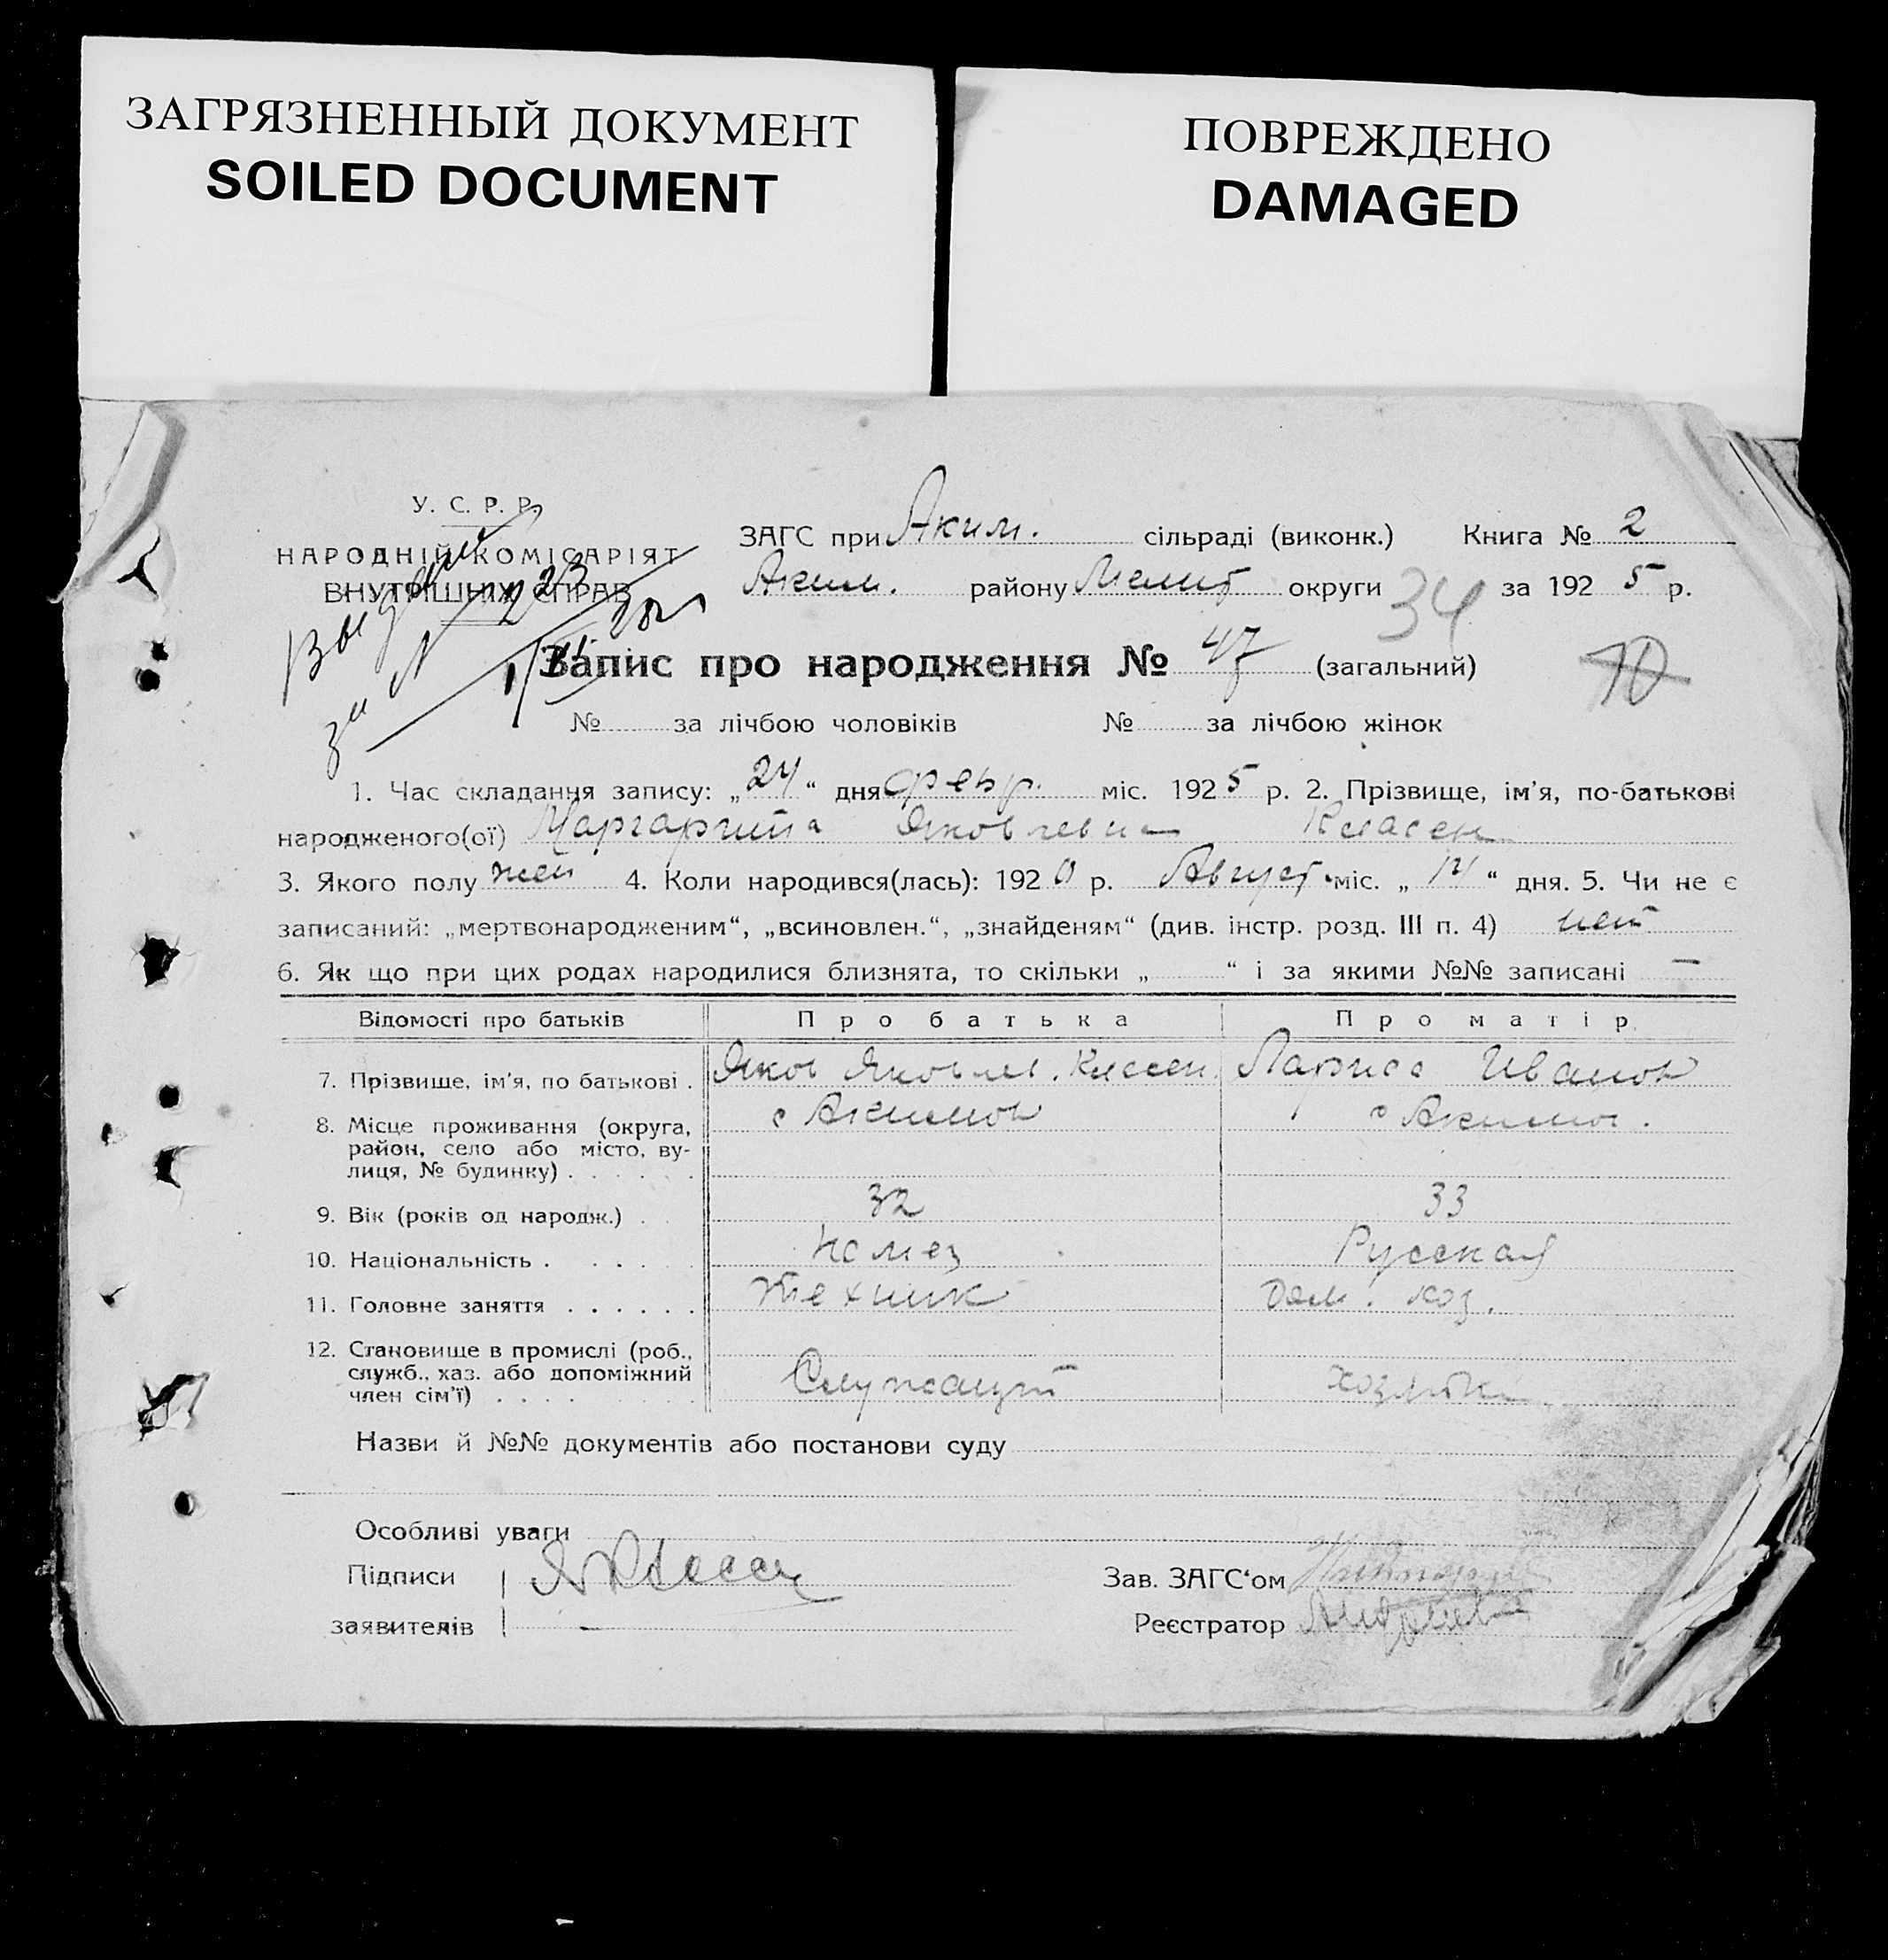 ЗАГРЯЗНЕННЫЙ ДОКУМЕНТ
SOILED DOCUMENT
ПОВРЕЖДЕНО
DAMAGED
У. С. Р. Р.
НАРОДНІЙ КОМІСАРІЯТ
ВНУТРІШНІХ СПРАВ
ЗАГС при Аким. сільраді (виконк.) Книга № 2
Аким. району Мелит округи 34 за 1925 р.
Запис про народження № 47 (загальний)
10
№ за лічбою чоловіків № за лічбою жінок
1. Час складання запису: „24“ дня февр. міс. 1925 р. 2. Прізвище, ім'я, по-батькові
народженого(ої) Маргарита Яковлевна Классен
3. Якого полу жен 4. Коли народився(лась): 1920 р. Август. міс. „14“ дня. 5. Чи не є
записаний: „мертвонародженим“, „всиновлен.“, „знайденям“ (див. інстр. розд. III п. 4) нет
6. Як що при цих родах народилися близнята, то скільки „ “ і за якими №№ записані —
Відомості про батьків Про батька Про матір
7. Прізвище, ім'я, по батькові . Яков Яковлев. Классен. Лариса Иванов
8. Місце проживання (округа, с Акимов с Акимов.
район, село або місто, ву-
лиця, № будинку) . . . . .
9. Вік (років од народж.) . . 32 33
10. Національність . . . . . Немец Русская
11. Головне заняття . . . . . . Техник Дом. хоз.
12. Становище в промислі (роб.,
служб., хаз. або допоміжний Служащий хозяйка
член сім'ї) . . . . . . . . .
Назви й №№ документів або постанови суду
Особливі уваги
Підписи Я Классен Зав. ЗАГС'ом
заявителів — Реєстратор